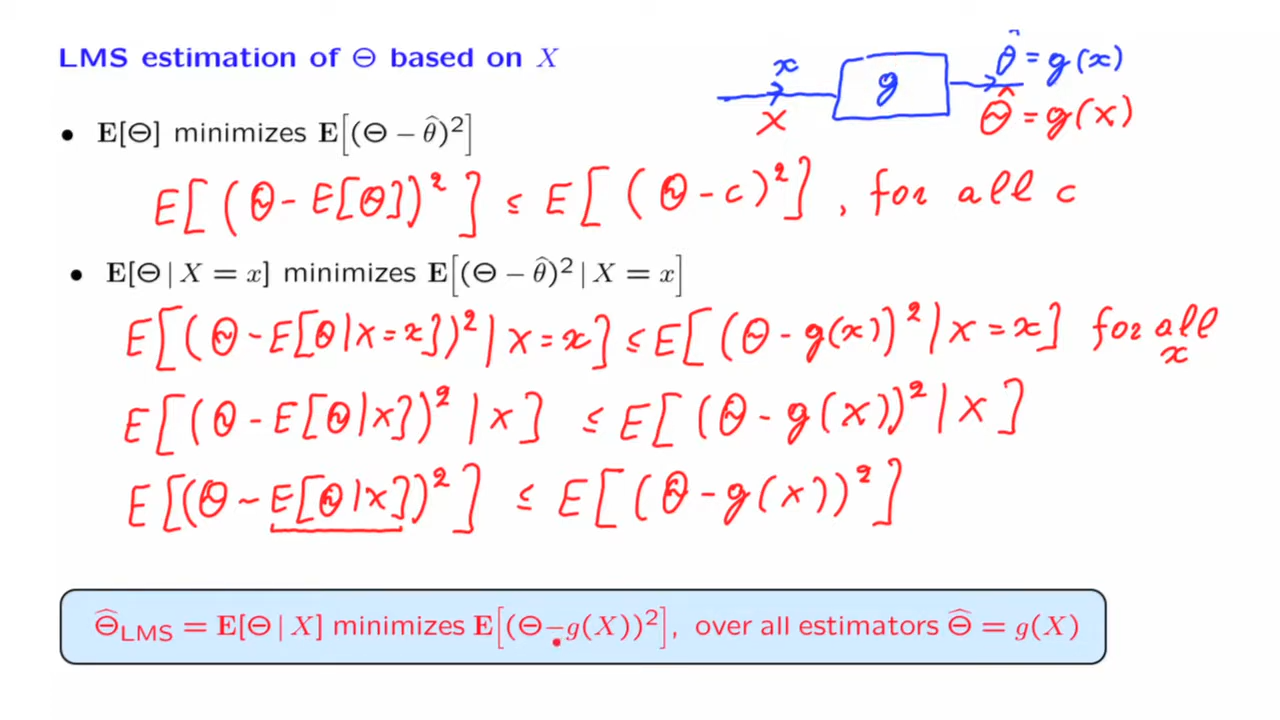 LMS estimation of Θ based on X
x
X
g
θ̂ = g(x)
Θ̂ = g(X)
• E[Θ] minimizes E[(Θ − θ̂)²]
E[(Θ − E[Θ])²] ≤ E[(Θ − c)²], for all c
• E[Θ | X = x] minimizes E[(Θ − θ̂)² | X = x]
E[(Θ − E[Θ | X = x])² | X = x] ≤ E[(Θ − g(x))² | X = x] for all x
E[(Θ − E[Θ | X])² | X] ≤ E[(Θ − g(X))² | X]
E[(Θ − E[Θ | X])²] ≤ E[(Θ − g(X))²]
Θ̂LMS = E[Θ | X] minimizes E[(Θ − g(X))²], over all estimators Θ̂ = g(X)